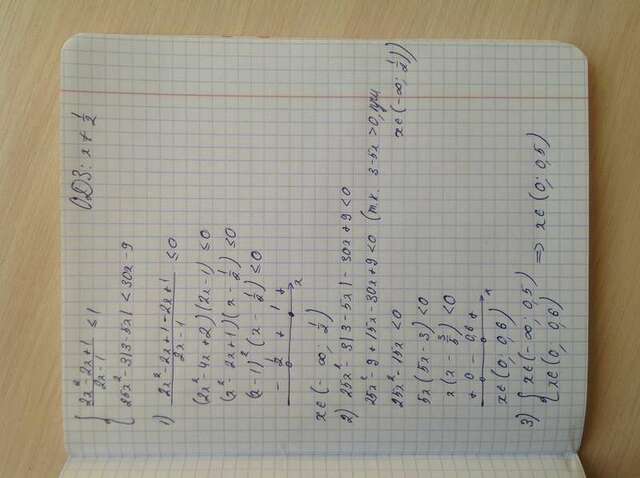 { (2x² - 2x + 1)/(2x - 1) ≤ 1 ОДЗ: x ≠ 1/2
25x² - 3|3 - 5x| < 30x - 9
1) (2x² - 2x + 1 - 2x + 1)/(2x - 1) ≤ 0
(2x² - 4x + 2)(2x - 1) ≤ 0
(x² - 2x + 1)(x - 1/2) ≤ 0
(x - 1)² (x - 1/2) ≤ 0
- 1/2 + 1 + x
x ∈ (- ∞; 1/2)
2) 25x² - 3|3 - 5x| - 30x + 9 < 0
25x² - 9 + 15x - 30x + 9 < 0 (т.к. 3 - 5x > 0, при
25x² - 15x < 0 x ∈ (- ∞; 1/2))
5x(5x - 3) < 0
x(x - 3/5) < 0
+ 0 - 0,6 + x
x ∈ (0; 0,6)
3) { x ∈ (- ∞; 0,5)
x ∈ (0, 0,6) ⇒ x ∈ (0; 0,5)